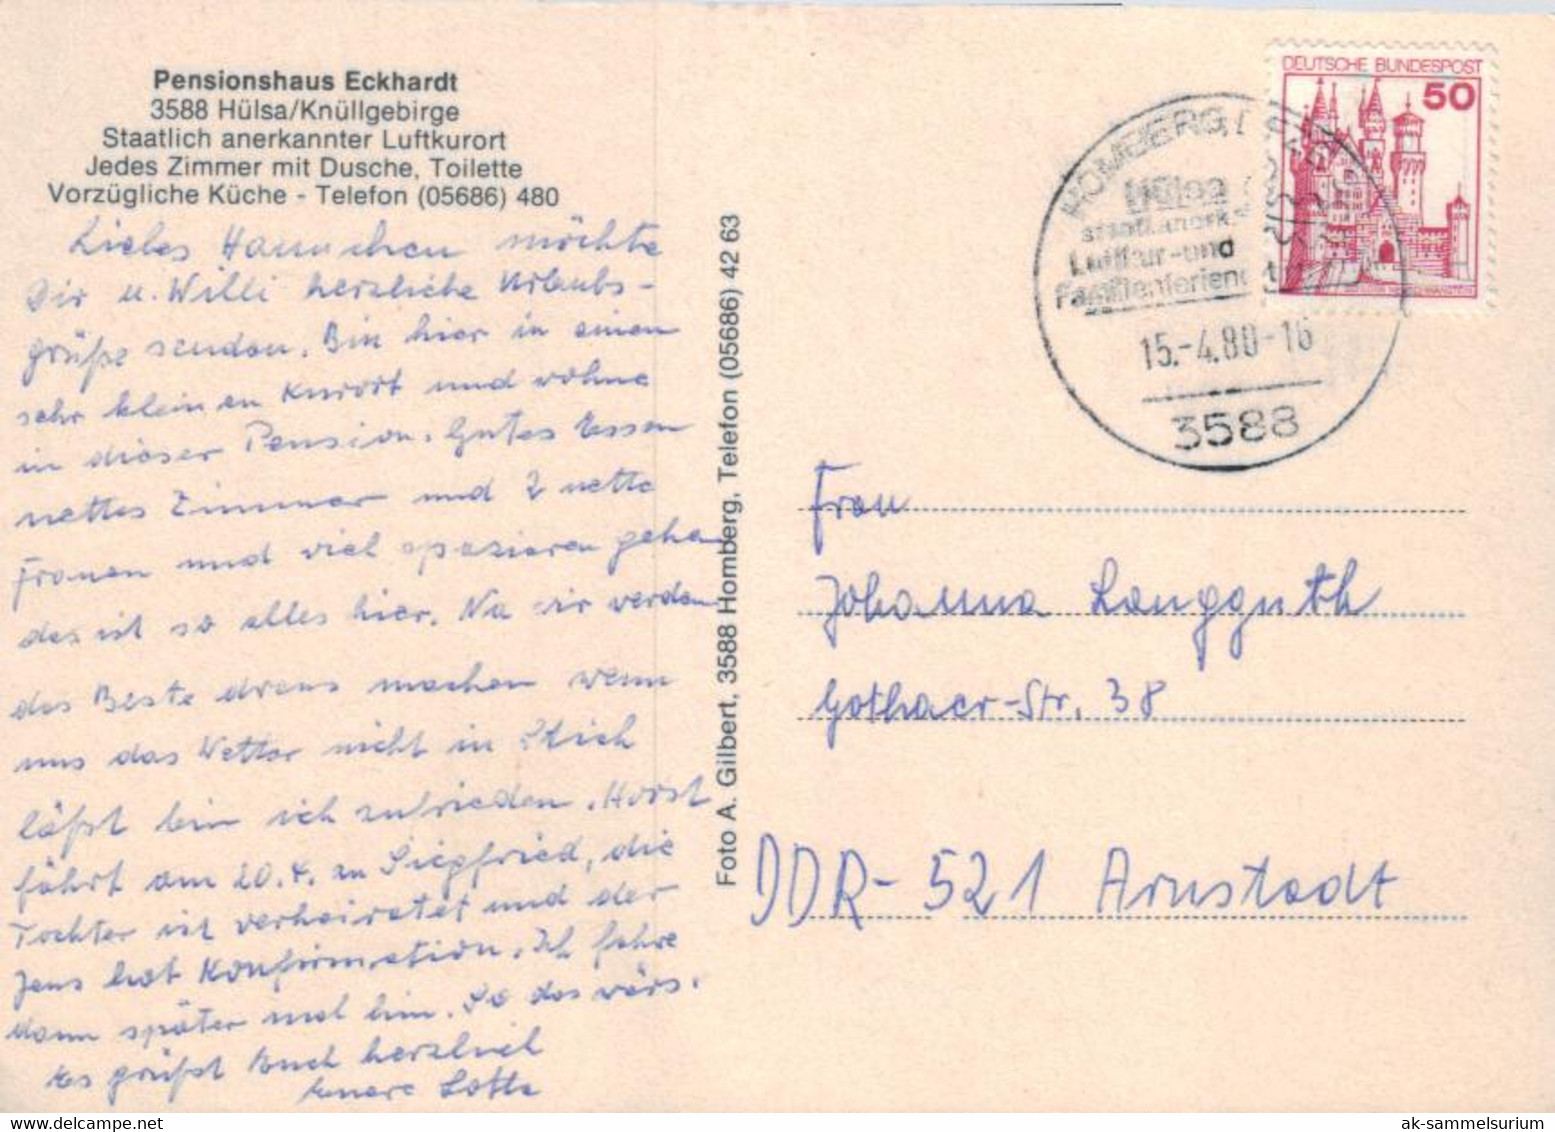 Pensionshaus Eckhardt
3588 Hülsa/Knüllgebirge
Staatlich anerkannter Luftkurort
Jedes Zimmer mit Dusche, Toilette
Vorzügliche Küche - Telefon (05686) 480
Liebes Hannchen möchte
Dir u. Willi herzliche Urlaubs-
grüße senden. Bin hier in einem
sehr kleinen Kurort und wohne
in dieser Pension. Gutes Essen
nettes Zimmer und 2 nette
Frauen und viel spazieren gehen
das ist so alles hier. Na wir werden
das Beste draus machen wenn
uns das Wetter nicht in Stich
läßt bin ich zufrieden. Horst
fährt am 20.4. zu Siegfried, die
Tochter ist verheiratet und der
Jens hat Konfirmation. Ich fahre
dann später mal hin. So das wärs.
Es grüßt Euch herzlich
Eure Lotte
Foto A. Gilbert, 3588 Homberg, Telefon (05686) 42 63
DEUTSCHE BUNDESPOST
50
HOMBERG,
Hülsa
staatl. anerk.
Luftkur-und
Familienferienort
15.-4.80-16
3588
Frau
Johanna Langguth
Gothaer-Str. 38
DDR-521 Arnstadt
ak-sammelsurium